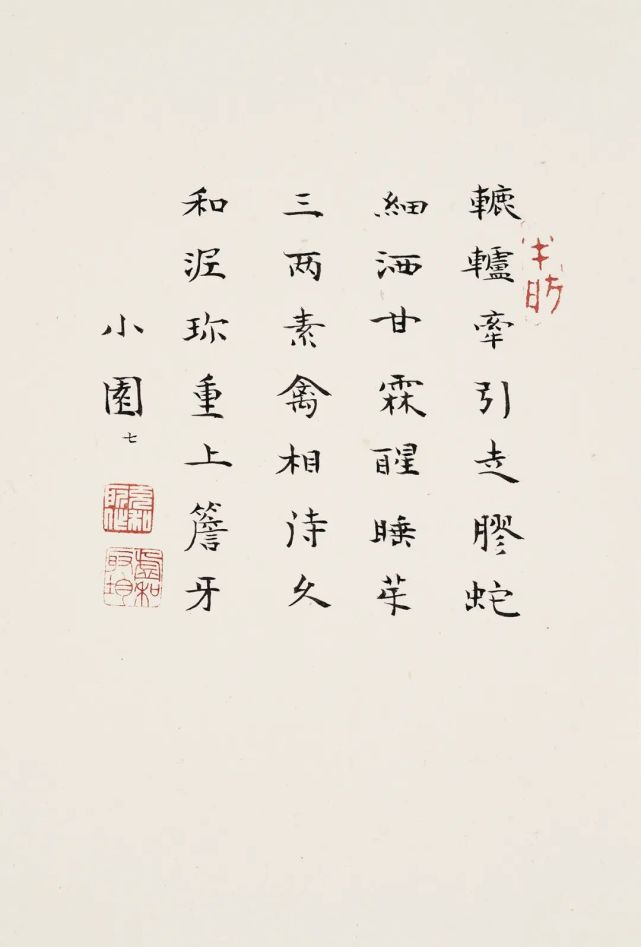 轆轤牽引走膠蛇
細洒甘霖醒睡
三两素禽相待久
和泥珍重上簷牙
小園 七